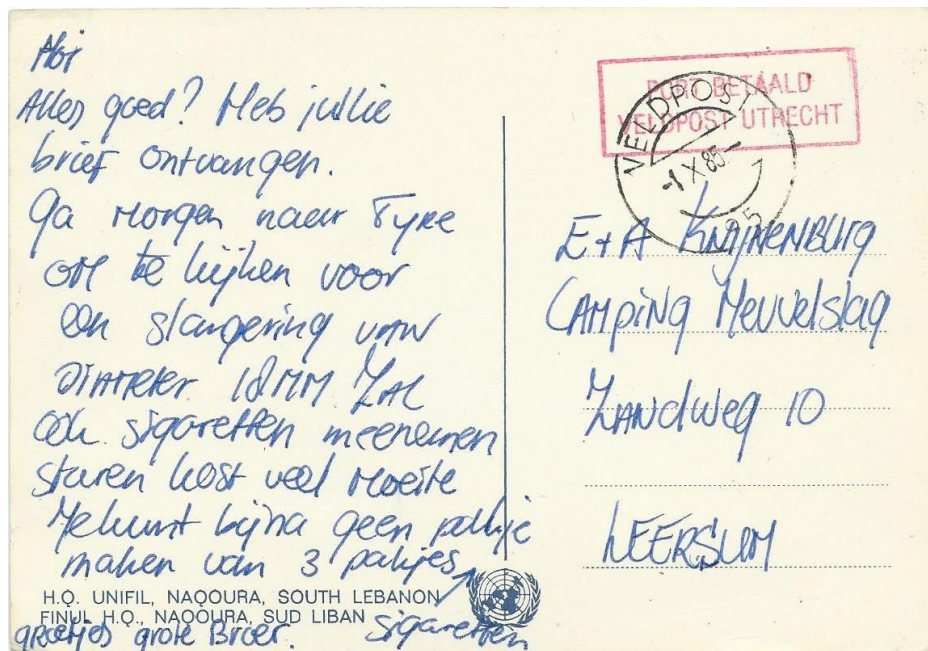 Hoi
Alles goed? Heb jullie
brief ontvangen.
Ga morgen naar Tyre
om te kijken voor
een slangering van
diameter 18MM Zal
ook sigaretten meenemen
sturen kost veel moeite
Je kunt bijna geen pakje
maken van 3 pakjes
sigaretten
groetjes grote Broer.
H.Q. UNIFIL, NAQOURA, SOUTH LEBANON
FINUL H.Q., NAQOURA, SUD LIBAN
PORT BETAALD
VELDPOST UTRECHT
VELDPOST
-1 X 85
95
E+A KNIJNENBURG
CAMPING Heuvelslag
Zandweg 10
LEERSUM